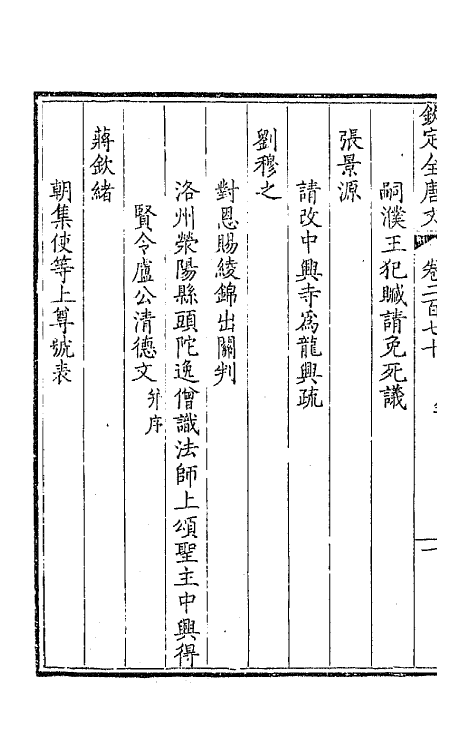 欽定全唐文 卷二百七十 一
嗣濮王犯贓請免死議
張景源
請改中興寺爲龍興疏
劉穆之
對恩賜綾錦出關判
洛州滎陽縣頭陀逸僧識法師上頌聖主中興得
賢令盧公清德文并序
蔣欽緒
朝集使等上尊號表